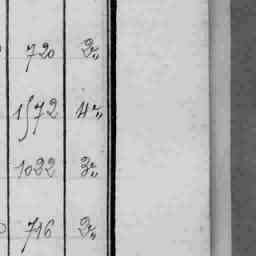 720 2„
1572 4„
1022 3„
716 2„